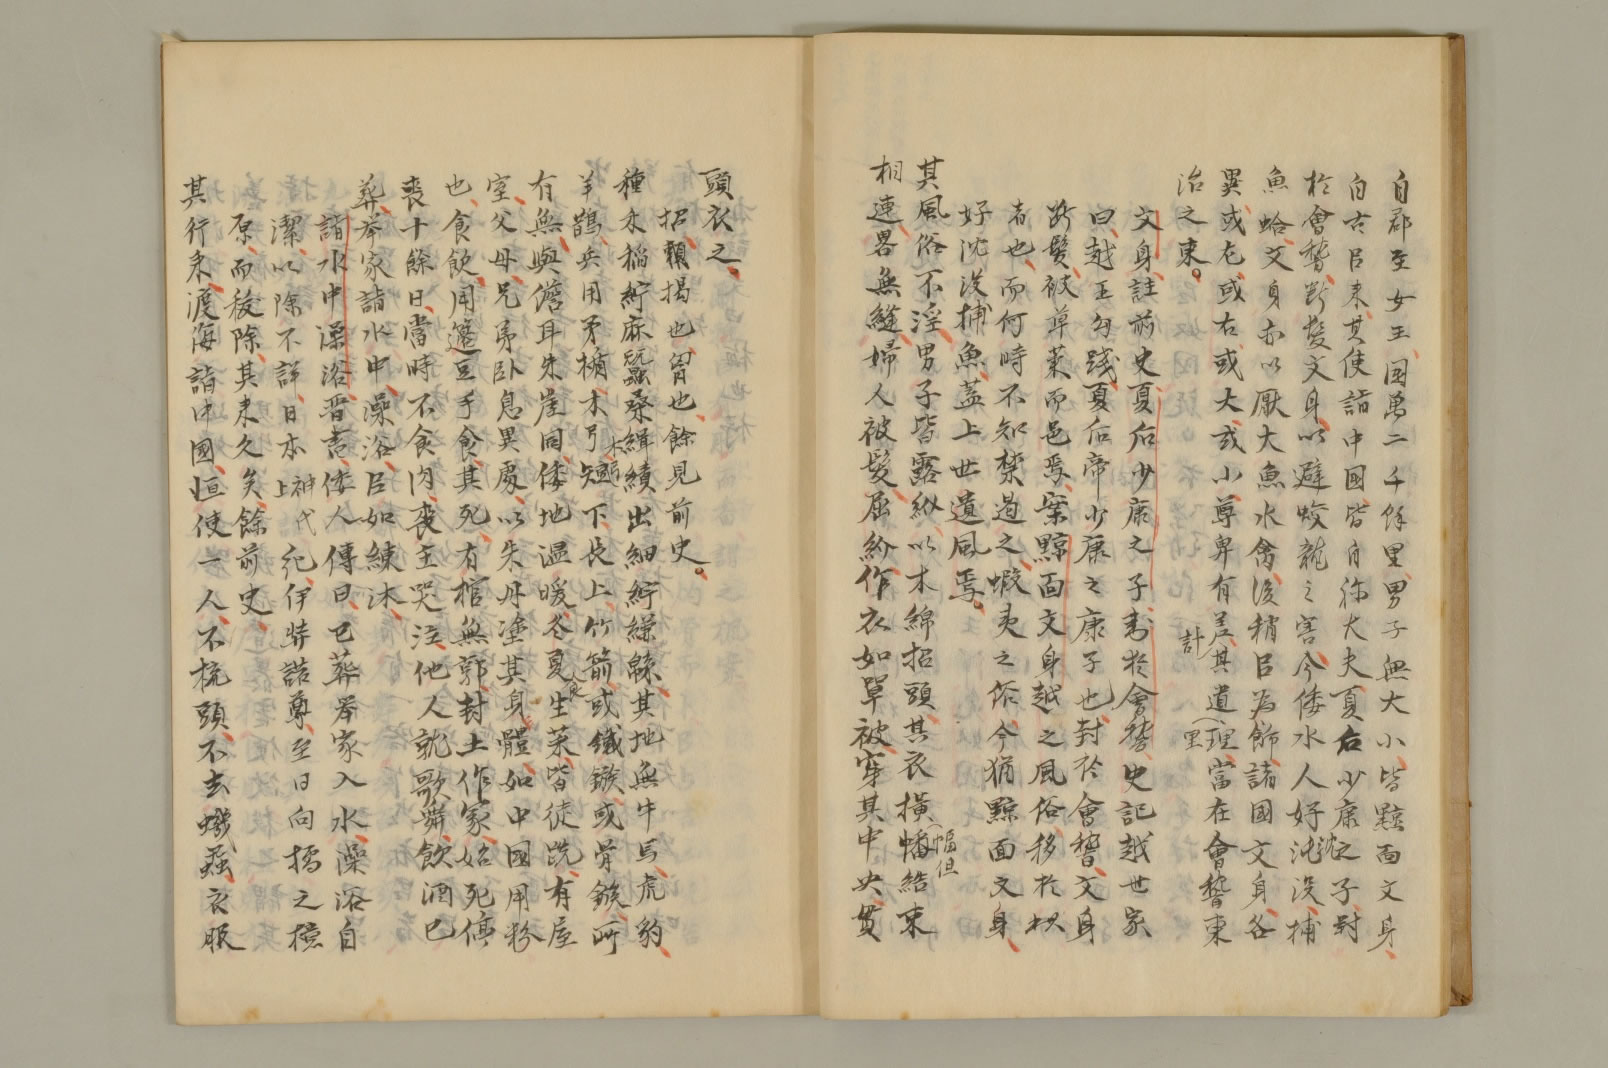 自郡至女王国萬二千餘里男子無大小皆黥面文身
自古曰来其使詣中國皆自称大夫夏后少康之子封
於會稽断髪文身以避蛟龍之害今倭水人好沈没捕
魚蛤文身亦以厭大魚水禽後稍曰為飾諸國文身各
異或左或右或大或小尊卑有差計其道里當在會稽東
治之東
文身註前史夏后少康之子封於會稽史記越世家
曰越王勾践夏后帝少康之康子也封於會稽文身
断髪被草莱而邑焉案黥面文身越之風俗移於
者也而何時不知禁遏之蝦夷之俗今猶黥面文身
好沈没捕魚蓋上世遺風焉
其風俗不淫男子皆露紒以木綿招頭其衣横幅但結束
相連畧無縫婦人被髪屈紒作衣如單被穿其中央貫
頭衣之
招頬掲也胃也餘見前史
種禾稲紵麻蚕桑緝績出細紵縑緜其地無牛馬虎豹
羊鵲兵用矛楯木弓短下長上竹箭或鐵鏃或骨鏃所
有無與儋耳朱崖同倭地温暖冬夏食生菜皆徒跣有屋
室父母兄弟卧息異處以朱丹塗其身體如中國用粉
也食飲用籩豆手食其死有棺無郭封土作冢始死停
喪十餘日當時不食肉喪主哭泣他人就歌舞飲酒已
葬挙家詣水中澡浴曰如練沐
詣水中澡浴晋書倭人傳曰已葬挙家入水澡浴自
潔以除不祥日本神代上紀伊弉諾尊至日向橘之檍
原而祓除其来久矣餘前史
其行来渡海詣中國恒使一人不梳頭不去蟣蝨衣服